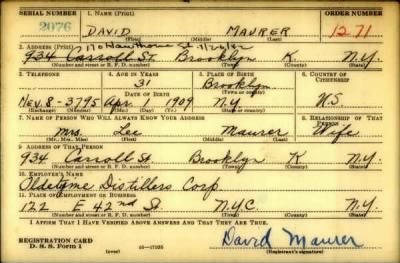 SERIAL NUMBER 1. NAME (Print) ORDER NUMBER
2076 DAVID MAURER 1271
(First) (Middle) (Last)
2. ADDRESS (Print)
934 Carroll St. Brooklyn K. N.Y.
(Number and street or R. F. D. number) (Town) (County) (State)
3. TELEPHONE 4. AGE IN YEARS 5. PLACE OF BIRTH 6. COUNTRY OF CITIZENSHIP
31 Brooklyn
DATE OF BIRTH (Town or county)
Nev. 8-3795 Apr. 1 1909 N.Y. U.S.
(Exchange) (Number) (Mo.) (Day) (Yr.) (State or country)
7. NAME OF PERSON WHO WILL ALWAYS KNOW YOUR ADDRESS 8. RELATIONSHIP OF THAT PERSON
Mrs. Lee Maurer Wife
(Mr., Mrs., Miss) (First) (Middle) (Last)
9. ADDRESS OF THAT PERSON
934 Carroll St. Brooklyn K N.Y.
(Number and street or R. F. D. number) (Town) (County) (State)
10. EMPLOYER'S NAME
Oldetyme Distillers Corp.
11. PLACE OF EMPLOYMENT OR BUSINESS
122 E 42nd St. NYC N.Y.
(Number and street or R. F. D. number) (Town) (County) (State)
I AFFIRM THAT I HAVE VERIFIED ABOVE ANSWERS AND THAT THEY ARE TRUE.
REGISTRATION CARD
D. S. S. Form 1 (over) David Maurer
(Registrant's signature)